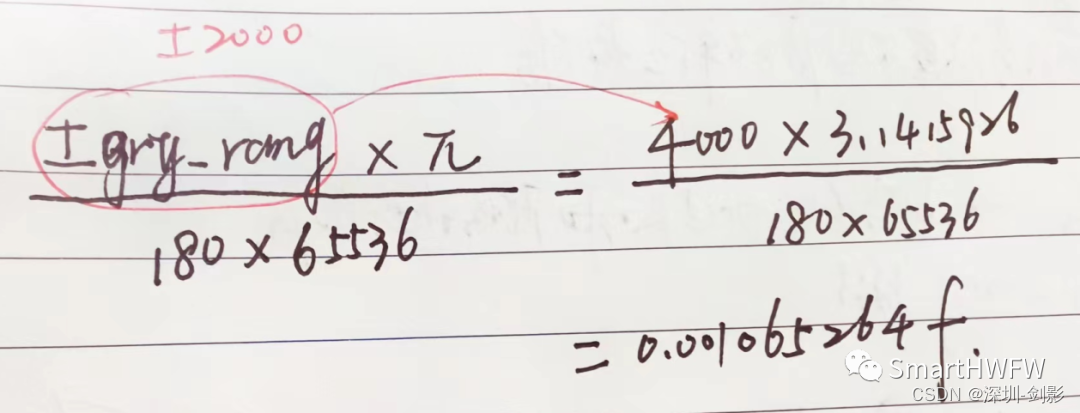 ±2000
±gry_rang × π / 180 × 65536 = 4000 × 3.1415926 / 180 × 65536
= 0.001065264 f.
SmartHWFW
CSDN @深圳-剑影